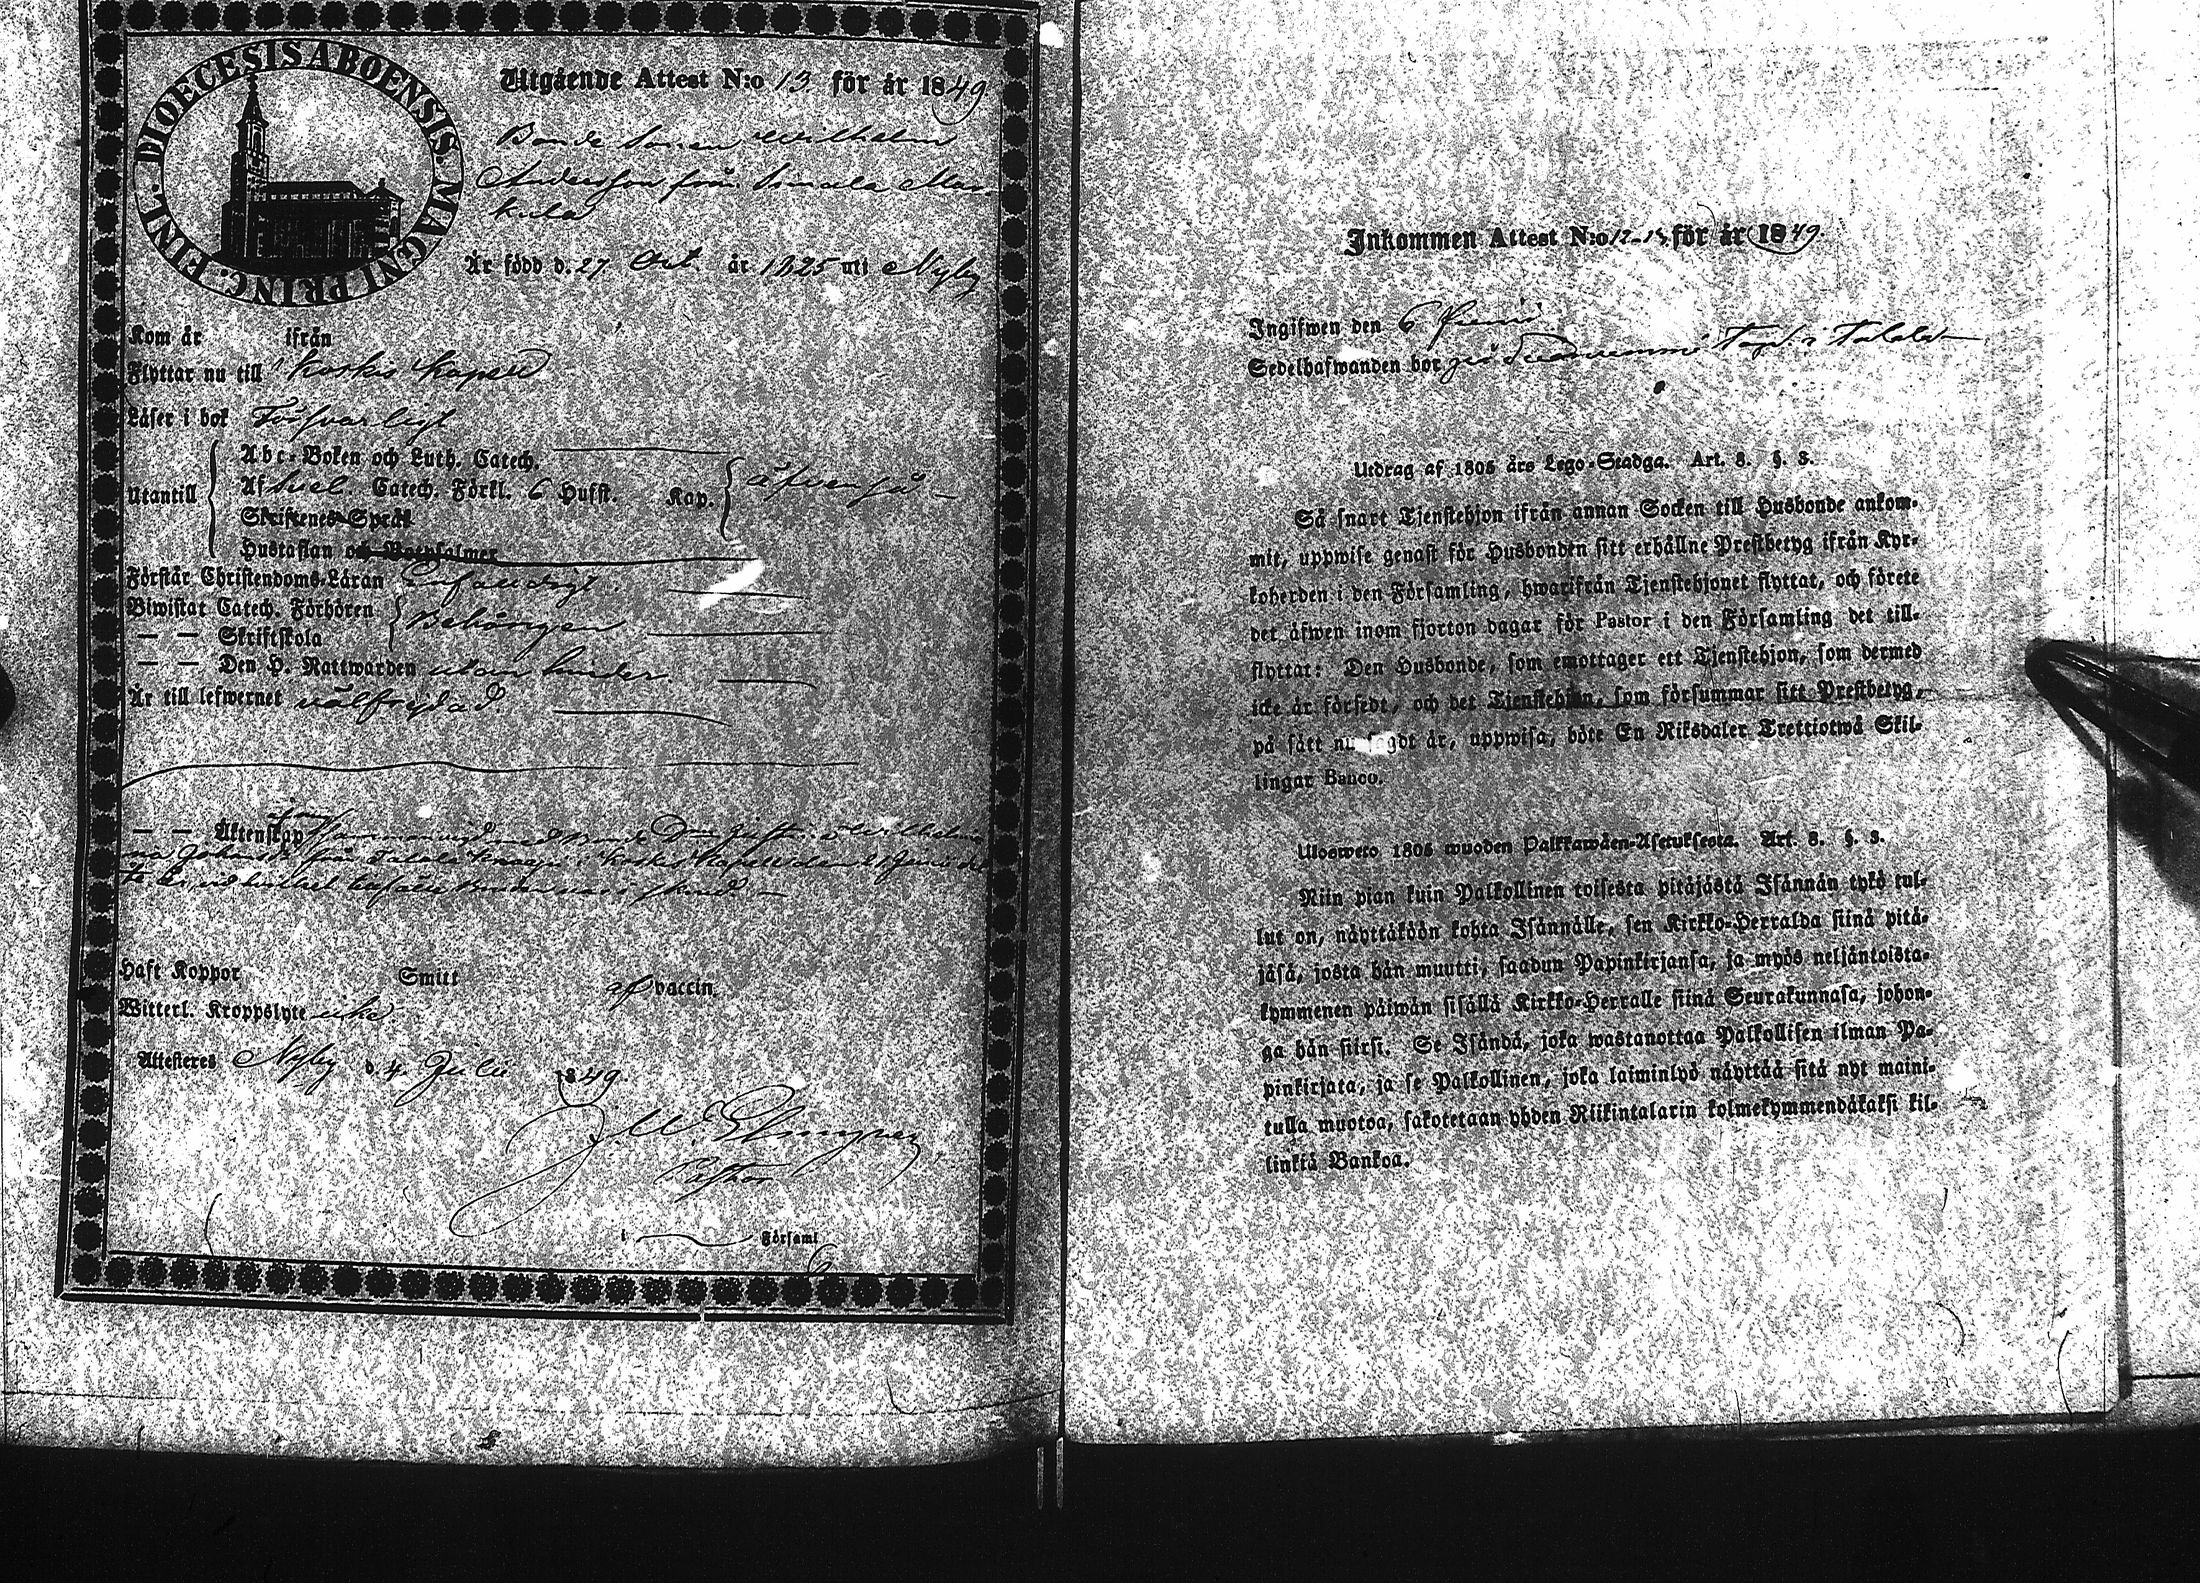 DIOECESIS ABOENSIS. MAGNI PRINC. FINL.
Utgående Attest N:o 13 för år 1849
Bonde Sonen Wilhelm
Andersson från Simala Mar-
kula
Är född d. 27 Oct. år 1825 uti Nyby
Kom år ifrån
Flyttar nu till Koskis Kapell
Läser i bok Försvarligt
Utantill
Abc-Boken och Luth. Catech.
Af Svel. Catech. Förkl. 6 Hufst. Kap. äfvenså –
Skriftenes Språk
Hustaflan och Botpsalmer
Förstår Christendoms-Läran Enfaldigt.
Biwistat Catech. Förhören Behörigen
— — Skriftskola
— — Den H. Nattwarden utan hinder
Är till lefwernet välfrejdad.
— — Äktenskap
från i Koskis Kapell den Junii
Haft Koppor Smitt af vaccin.
Witterl. Kroppslyte icke
Attesteres Nyby d. 4 Julii 1849.
Pastor
i Församl.
6
Inkommen Attest N:o 12-13 för år 1849.
Ingifwen den 6
Sedelhafwanden bor på Torp i
Utdrag af 1805 års Lego-Stadga. Art. 8. §. 3.
Så snart Tjenstehjon ifrån annan Socken till Husbonde ankom-
mit, uppwise genast för Husbonden sitt erhållne Prestbetyg ifrån Kyr-
koherden i den Församling, hwarifrån Tjenstehjonet flyttat, och förete
det äfwen inom fjorton dagar för Pastor i den Församling det till-
flyttat: Den Husbonde, som emottager ett Tjenstehjon, som dermed
icke är försedt, och det Tjenstehjon, som försummar sitt Prestbetyg,
på sätt nu sagdt är, uppwisa, böte En Riksdaler Trettiotwå Skil-
lingar Banco.
Ulosweto 1805 wuoden Palkkawäen-Asetuksesta. Art. 8. §. 3.
Niin pian kuin Palkollinen toisesta pitäjästä Isännän tykö tul-
lut on, näyttäköön kohta Isännälle, sen Kirkko-Herralda siinä pitä-
jäsä, josta hän muutti, saadun Papinkirjansa, ja myös neljäntoista-
kymmenen päiwän sisällä Kirkko-Herralle siinä Seurakunnasa, johon-
ga hän siirsi. Se Isändä, joka wastanottaa Palkollisen ilman Pa-
pinkirjata, ja se Palkollinen, joka laiminlyö näyttää sitä nyt maini-
tulla muotoa, sakotetaan yhden Riikintalarin kolmekymmendäkaksi kil-
linkiä Bankoa.